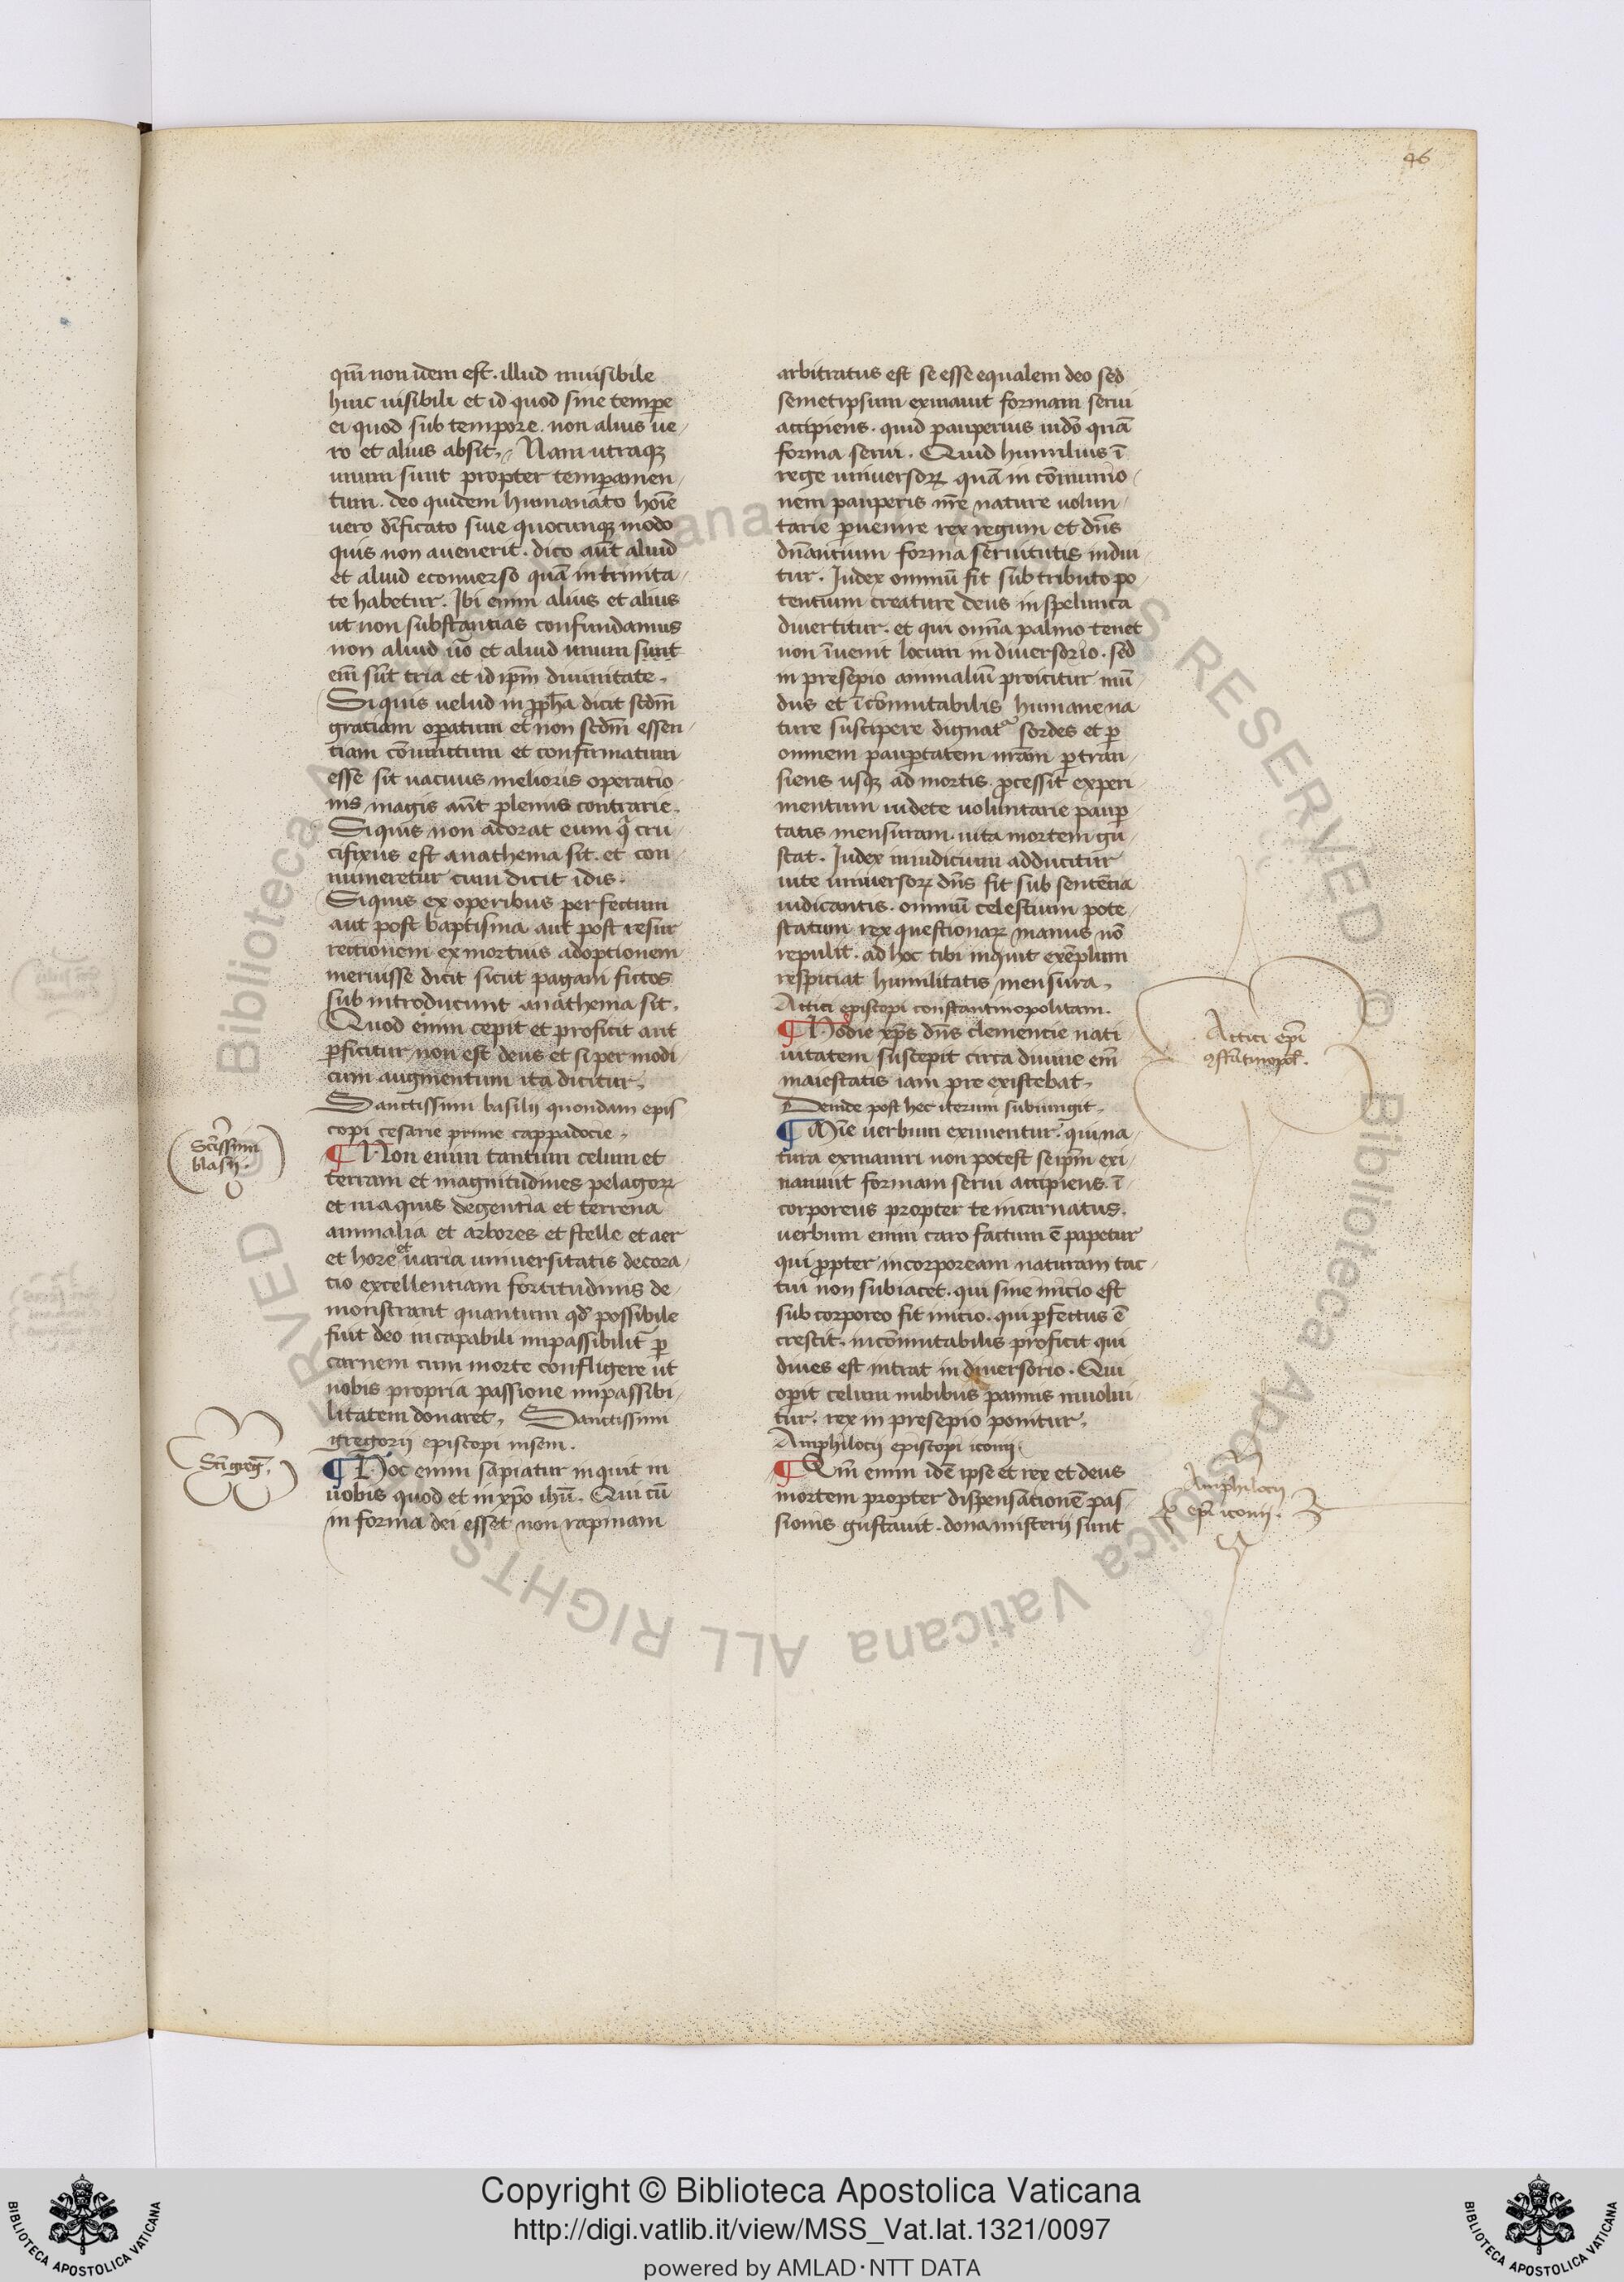 46
qm̄ non idem est. illud inuisibile
huic uisibili et id quod sine tempe
ei quod sub tempore. non alius ue
ro et alius absit. Nam utraqꝫ
unum sunt propter temꝑamen
tum. deo quidem humanato hoīe
uero dīficato siue quocunqꝫ modo
quis non auenerit. dico aūt aliud
et aliud econuerso quā in trinita
te habetur. Ibi enim alius et alius
ut non substantias confundamus
non aliud ūo et aliud unum sunt
em̄ sūt tria et id ip̄m diuinitate.
Si quis uelud in ꝓph̄a dicit scd̄m
gratiam oꝑatum et non scd̄m essen
tiam cōiunctum et confirmatum
esse sit uacuus melioris operatio
nis magis aūt plenus contrarie.
Si quis non adorat eum q̄ cru
cifixus est anathema sit. et con
numeretur cum dicit idis.
Si quis ex operibus perfectum
aut post baptisma aut post resur
rectionem ex mortuis adoptionem
meruisse dicit sicut pagani fictos
sub introducunt anathema sit.
Quod enim cepit et proficit aut
ꝑficitur non est deus et si per modi
cum augmentum ita dicitur.
Sanctissimi basilij quondam epis
copi cesarie prime cappadocie.
¶ Non enim tantum celum et
terram et magnitudines pelagorꝝ
et in aquis degentia et terrena
animalia et arbores et stelle et aer
et hore et uaria uniuersitatis decora
tio excellentiam fortitudinis de
monstrant quantum qd̄ possibile
fuit deo incapabili impassibilit̄ ꝑ
carnem cum morte confligere ut
nobis propria passione impassibi
litatem donaret. Sanctissimi
gregorij episcopi niseni.
¶ Hoc enim sapiatur inquit in
uobis quod et in xp̄o ihū. Qui cū
in forma dei esset non rapinam
Sc̄issimi
blasij.
Sc̄i greḡ.
arbitratus est se esse equalem deo sed
semetipsum exinauit formam serui
accipiens. quid pauperius in dō quā
forma serui. Quid humilius ī
rege uniuersorꝝ quā in cōmunio
nem pauperis nr̄e nature uolun
tarie ꝑuenire rex regum et dn̄s
dn̄antium forma seruitutis indui
tur. Iudex omniū fit sub tributo po
tentium creature deus in spelunca
diuertitur. et qui omīa palmo tenet
non īuenit locum in diuersorio. sed
in presepio animaliū proicitur mū
dus et īcōmutabilis humane na
ture suscipere dignatᷣ sordes et ꝑ
omnem pauꝑtatem nr̄am ꝑtran
siens usqꝫ ad mortis ꝓcessit experi
mentum uidete uoluntarie pauꝑ
tatis mensuram. uita mortem gu
stat. Iudex in iudicium adducitur
uite uniuersorꝝ dn̄s fit sub sentētia
iudicantis. omniū celestium pote
statum rex questionarꝝ manus nō
repulit. ad hoc tibi inquit exēplum
respiciat humilitatis mensura.
Attici episcopi constantinopolitani.
¶ Hodie xp̄s dn̄s clementie nati
uitatem suscepit circa diuine em̄
maiestatis iam pre existebat.
Deinde post hec iterum subiungit.
¶ Mīe uerbum exinentur. qui na
tura exinaniri non potest seip̄m exi
naniuit formam serui accipiens. ī
corporeus propter te incarnatus.
uerbum enim caro factum ē papetur
qui ꝓpter incorpoream naturam tac
tui non subiacet. qui sine inicio est
sub corporeo fit inicio. qui ꝑfectus ē
crescit. incōmutabilis proficit qui
diues est intrat in diuersorio. Qui
oꝑit celum nubibus pannis inuolui
tur. rex in presepio ponitur.
Amphilocij episcopi iconij.
¶ Qm̄ enim idē ipse et rex et deus
mortem propter dispensationē pas
sionis gustauit. dona misterij sunt
Attici ep̄i
ꝯstātinopol̄.
Amphilocij
ep̄i iconij.
Copyright © Biblioteca Apostolica Vaticana
http://digi.vatlib.it/view/MSS_Vat.lat.1321/0097
powered by AMLAD·NTT DATA
BIBLIOTECA APOSTOLICA VATICANA
BIBLIOTECA APOSTOLICA VATICANA